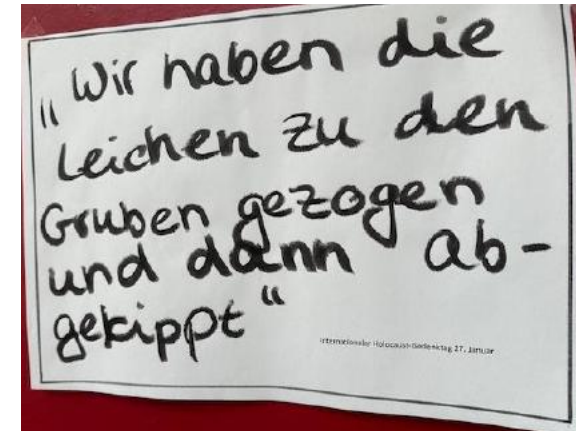 „Wir haben die
Leichen zu den
Gruben gezogen
und dann ab-
gekippt“
Internationaler Holocaust-Gedenktag 27. Januar